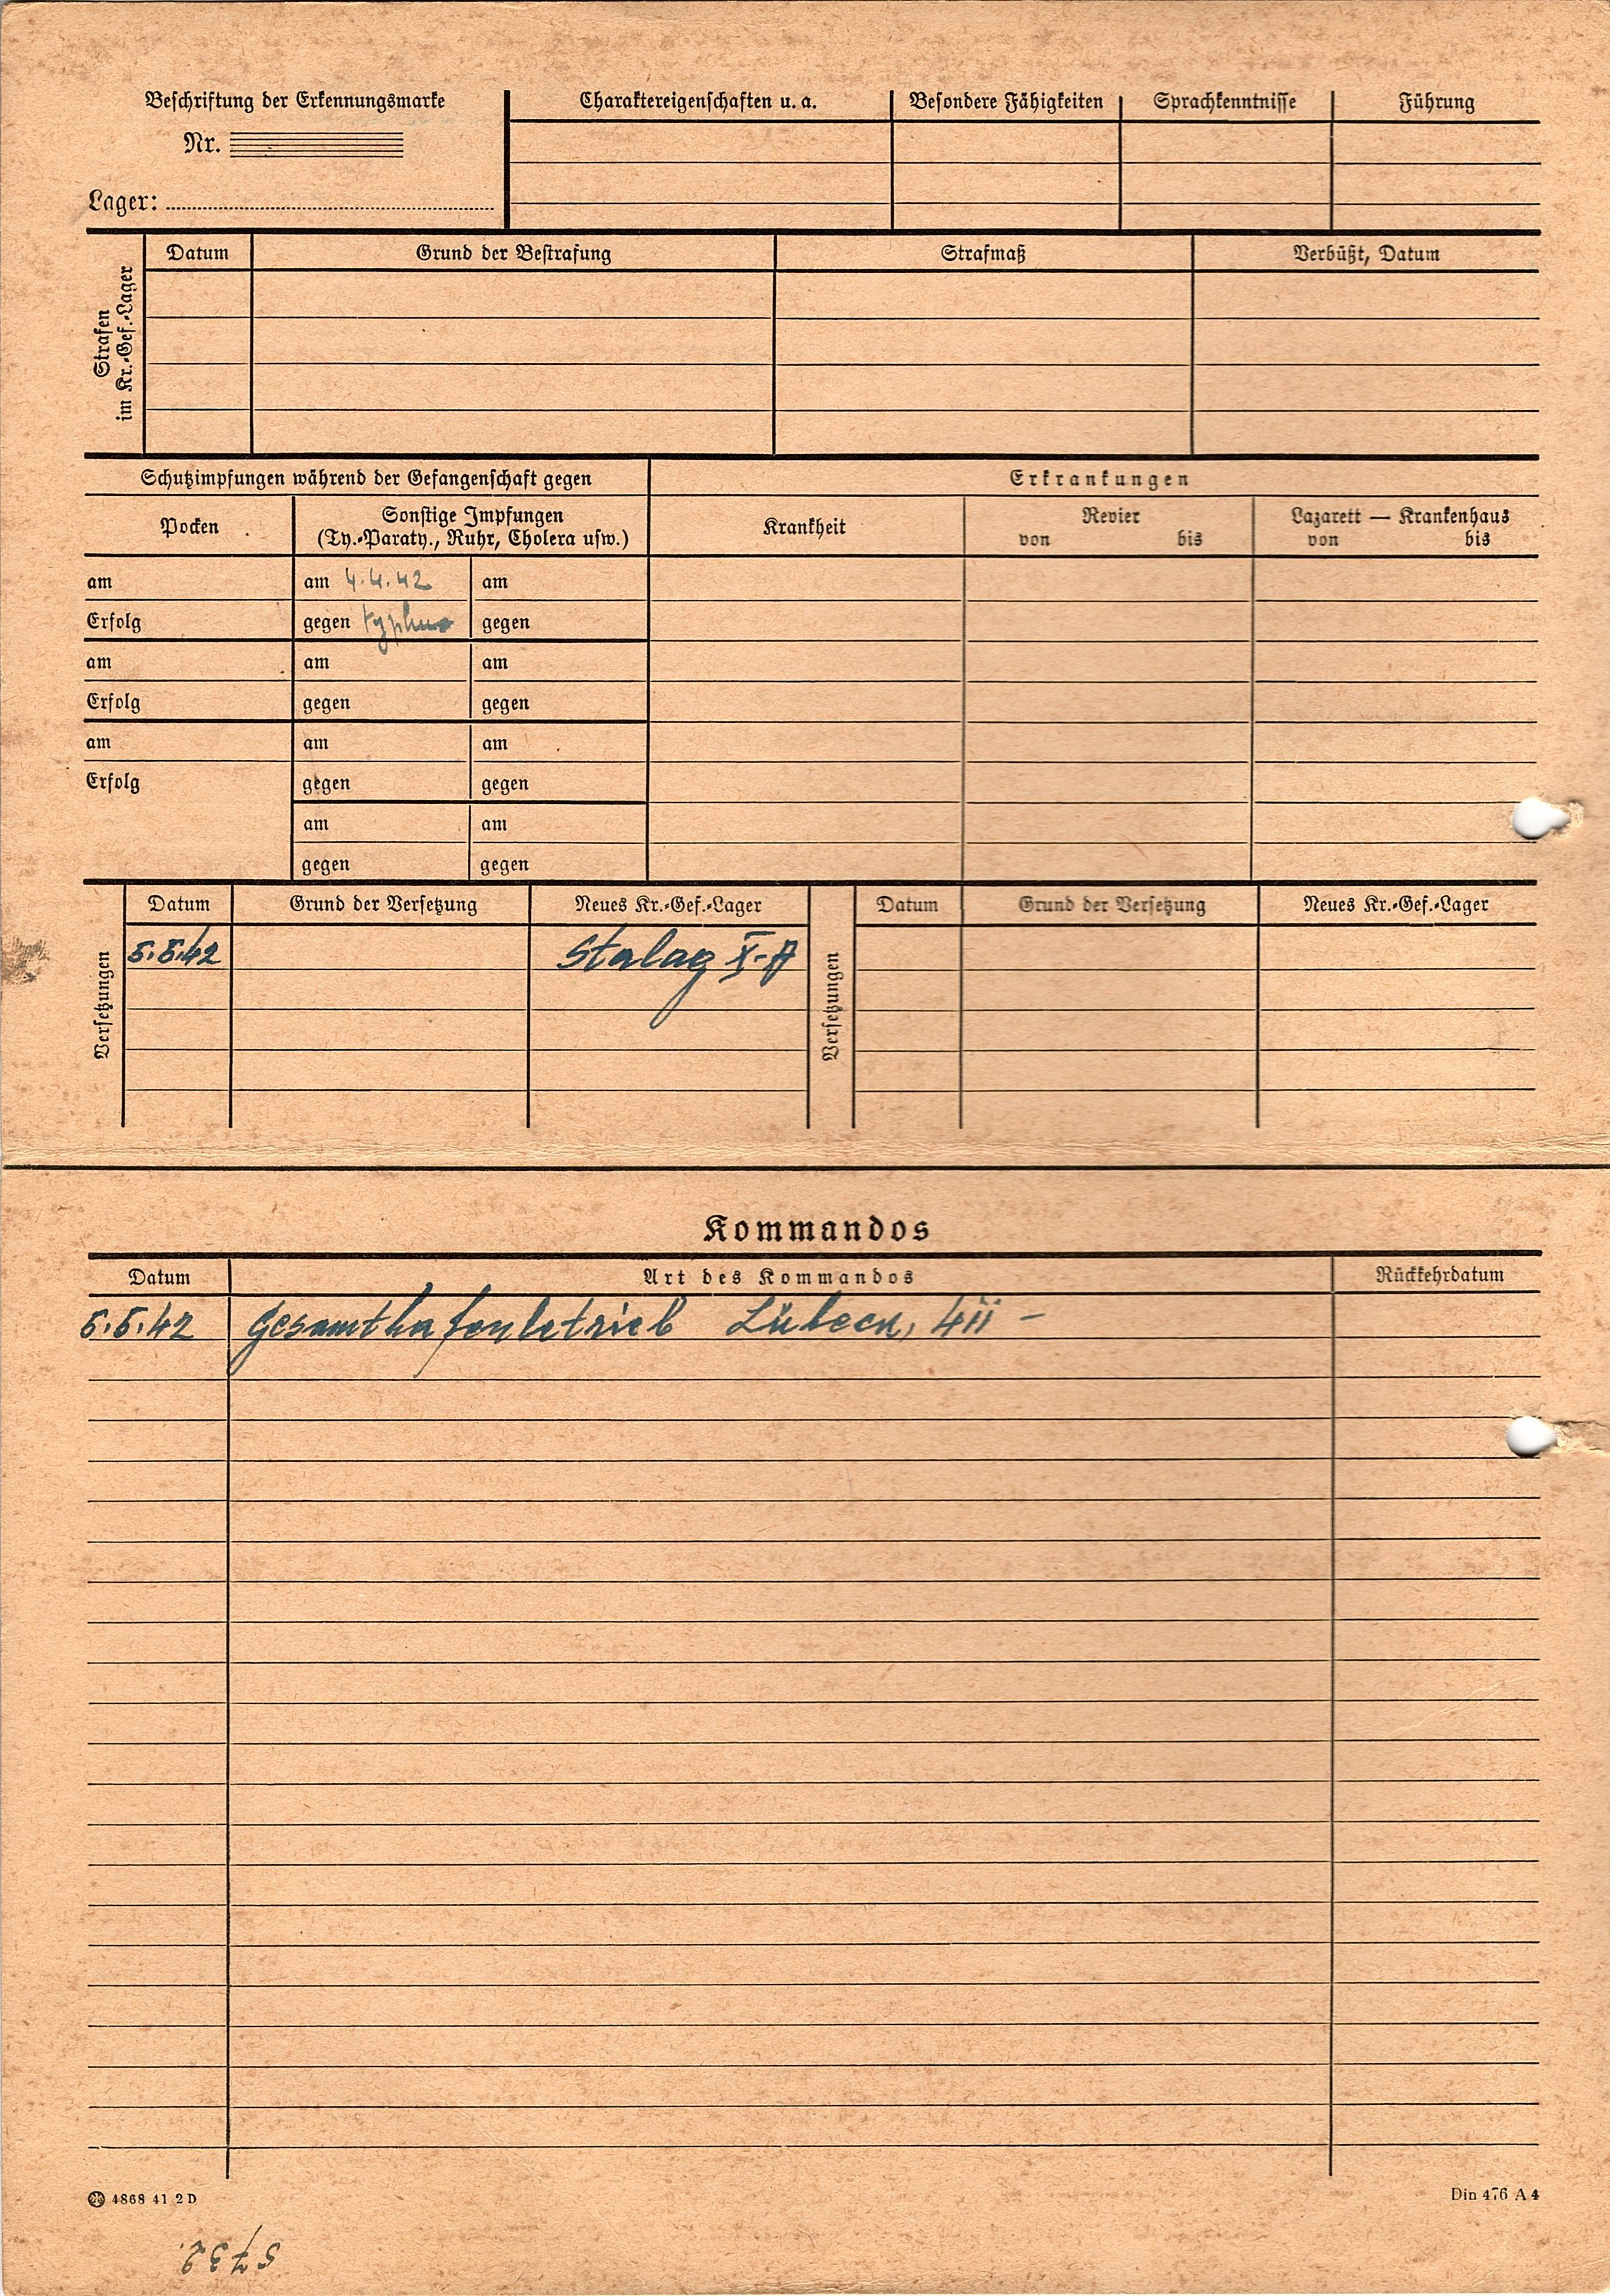 Beschriftung der Erkennungsmarke
Nr.
Lager:
Charaktereigenschaften u. a.
Besondere Fähigkeiten
Sprachkenntnisse
Führung
Strafen
im Kr.-Gef.-Lager
Datum
Grund der Bestrafung
Strafmaß
Verbüßt, Datum
Schutzimpfungen während der Gefangenschaft gegen
Erkrankungen
Pocken
Sonstige Impfungen
(Ty.-Paraty., Ruhr, Cholera usw.)
Krankheit
Revier
von bis
Lazarett — Krankenhaus
von bis
am
am 4.4.42
am
Erfolg
gegen typhus
gegen
am
am
am
Erfolg
gegen
gegen
am
am
am
Erfolg
gegen
gegen
am
am
gegen
gegen
Versetzungen
Datum
Grund der Versetzung
Neues Kr.-Gef.-Lager
Versetzungen
Datum
Grund der Versetzung
Neues Kr.-Gef.-Lager
5.5.42
Stalag X-A
Kommandos
Datum
Art des Kommandos
Rückkehrdatum
5.5.42
Gesamthafenbetrieb Lübeck,
4868 41 2 D
Din 476 A 4
5732.